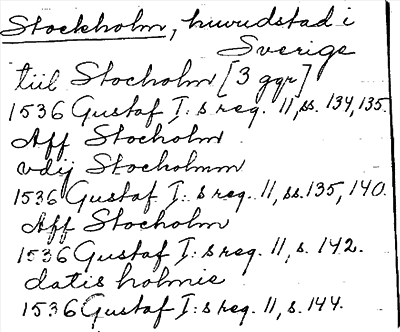 Stockholm, huvudstad i
Sverige
tiil Stocholm [3 ggr]
1536 Gustaf I:s reg. 11, ss. 134, 135.
Aff Stocholm
vdij Stocholmm
1536 Gustaf I:s reg. 11, ss. 135, 140.
Aff Stocholm
1536 Gustaf I:s reg. 11, s. 142.
datis holmie
1536 Gustaf I:s reg. 11, s. 144.